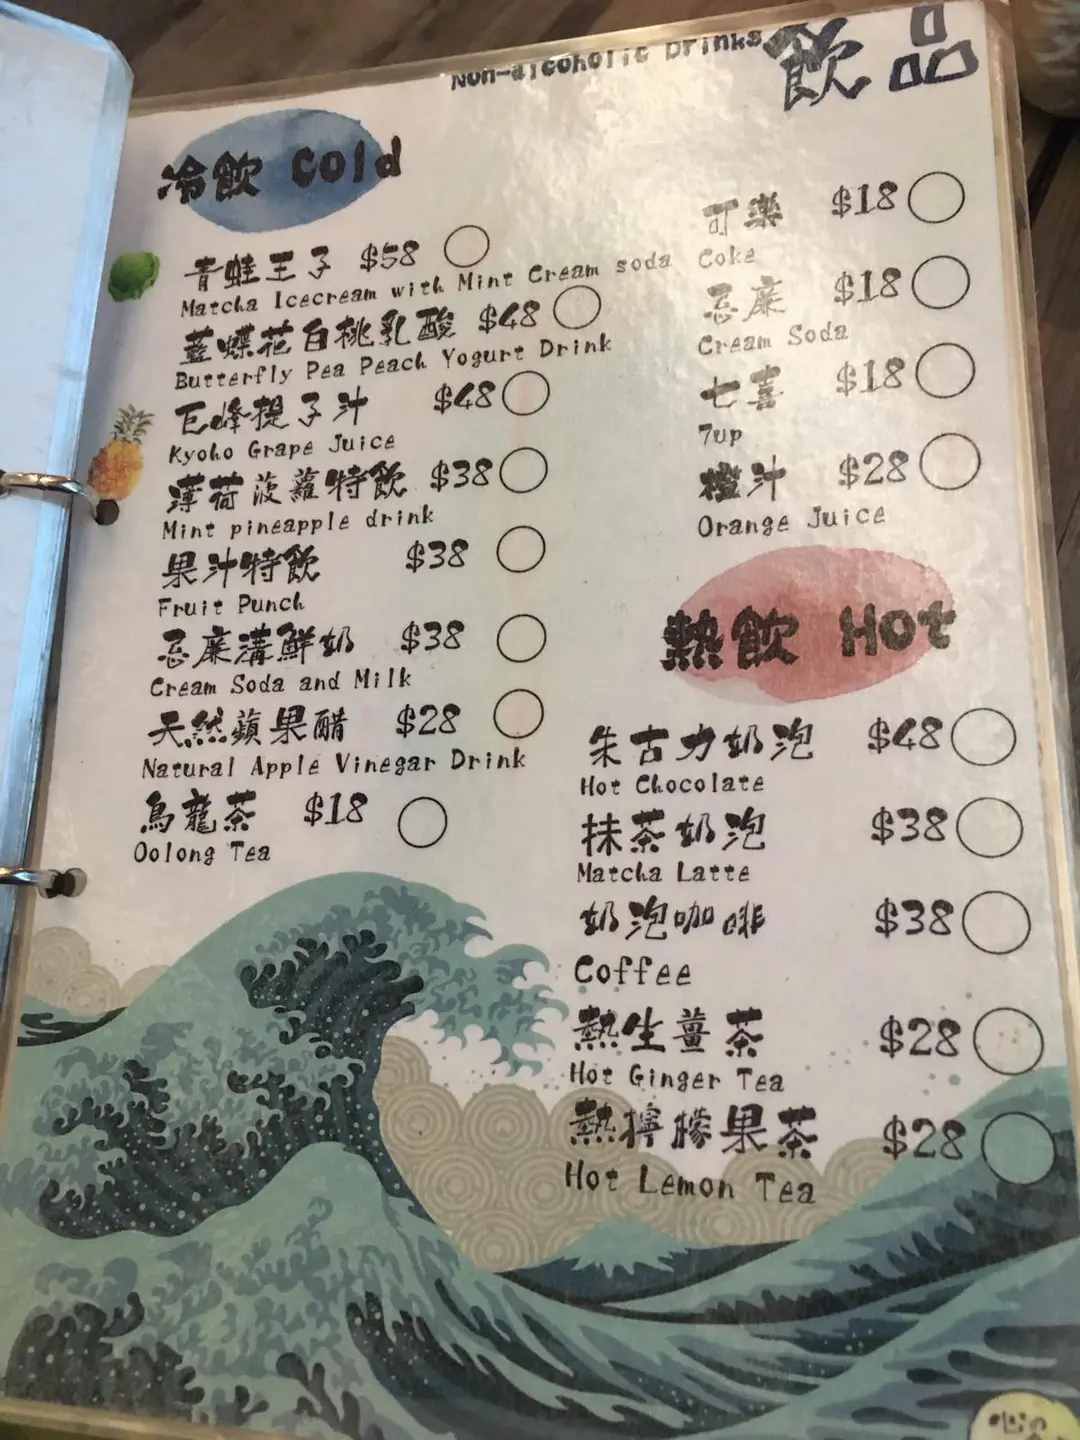 Non-alcoholic Drinks 飲品
冷飲 Cold
青蛙王子 $58
Matcha Icecream with Mint Cream soda
藍蝶花白桃乳酸 $48
Butterfly Pea Peach Yogurt Drink
巨峰提子汁 $48
Kyoho Grape Juice
薄荷菠蘿特飲 $38
Mint pineapple drink
果汁特飲 $38
Fruit Punch
忌廉溝鮮奶 $38
Cream Soda and Milk
天然蘋果醋 $28
Natural Apple Vinegar Drink
烏龍茶 $18
Oolong Tea
可樂 $18
Coke
忌廉 $18
Cream Soda
七喜 $18
7up
橙汁 $28
Orange Juice
熱飲 Hot
朱古力奶泡 $48
Hot Chocolate
抹茶奶泡 $38
Matcha Latte
奶泡咖啡 $38
Coffee
熱生薑茶 $28
Hot Ginger Tea
熱檸檬果茶 $28
Hot Lemon Tea
心の